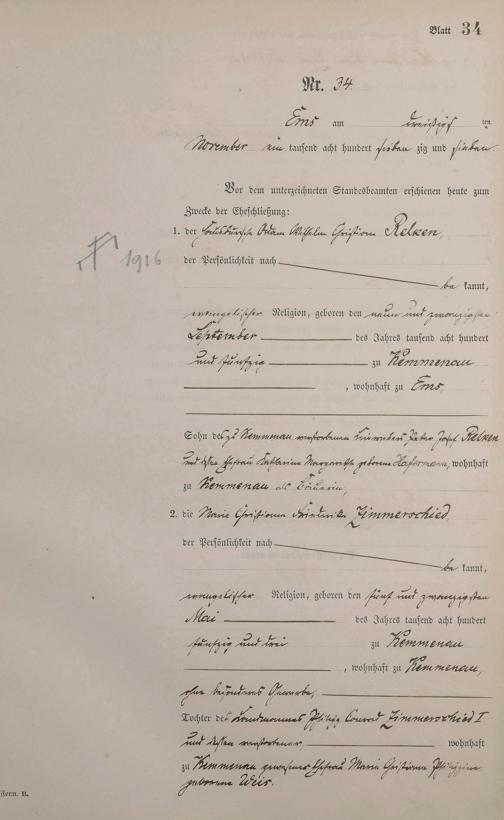 Blatt 34
Nr. 34.
Ems am dreißigsten
November ein tausend acht hundert sieben zig und sieben.
Vor dem unterzeichneten Standesbeamten erschienen heute zum
Zwecke der Eheschließung:
1. der Adam Wilhelm Christian Relken,
der Persönlichkeit nach
be kannt,
evangelischer Religion, geboren den neun und zwanzigsten
September des Jahres tausend acht hundert
und fünfzig zu Kemmenau
, wohnhaft zu Ems,
Sohn des zu Kemmenau verstorbenen Peter Josef Relken
und dessen Ehefrau Katharina Margaretha geborene, wohnhaft
zu Kemmenau als
2. die Marie Christiane Friederike Zimmerschied,
der Persönlichkeit nach
be kannt,
evangelischer Religion, geboren den fünf und zwanzigsten
Mai des Jahres tausend acht hundert
fünfzig und drei zu Kemmenau
, wohnhaft zu Kemmenau,
ohne besonderes Gewerbe,
Tochter des Landmannes Philipp Conrad Zimmerschied I
und dessen verstorbener, wohnhaft
zu Kemmenau gewesener Ehefrau Marie Christiane Philippine
geborene Weis.
Form. B.
1916